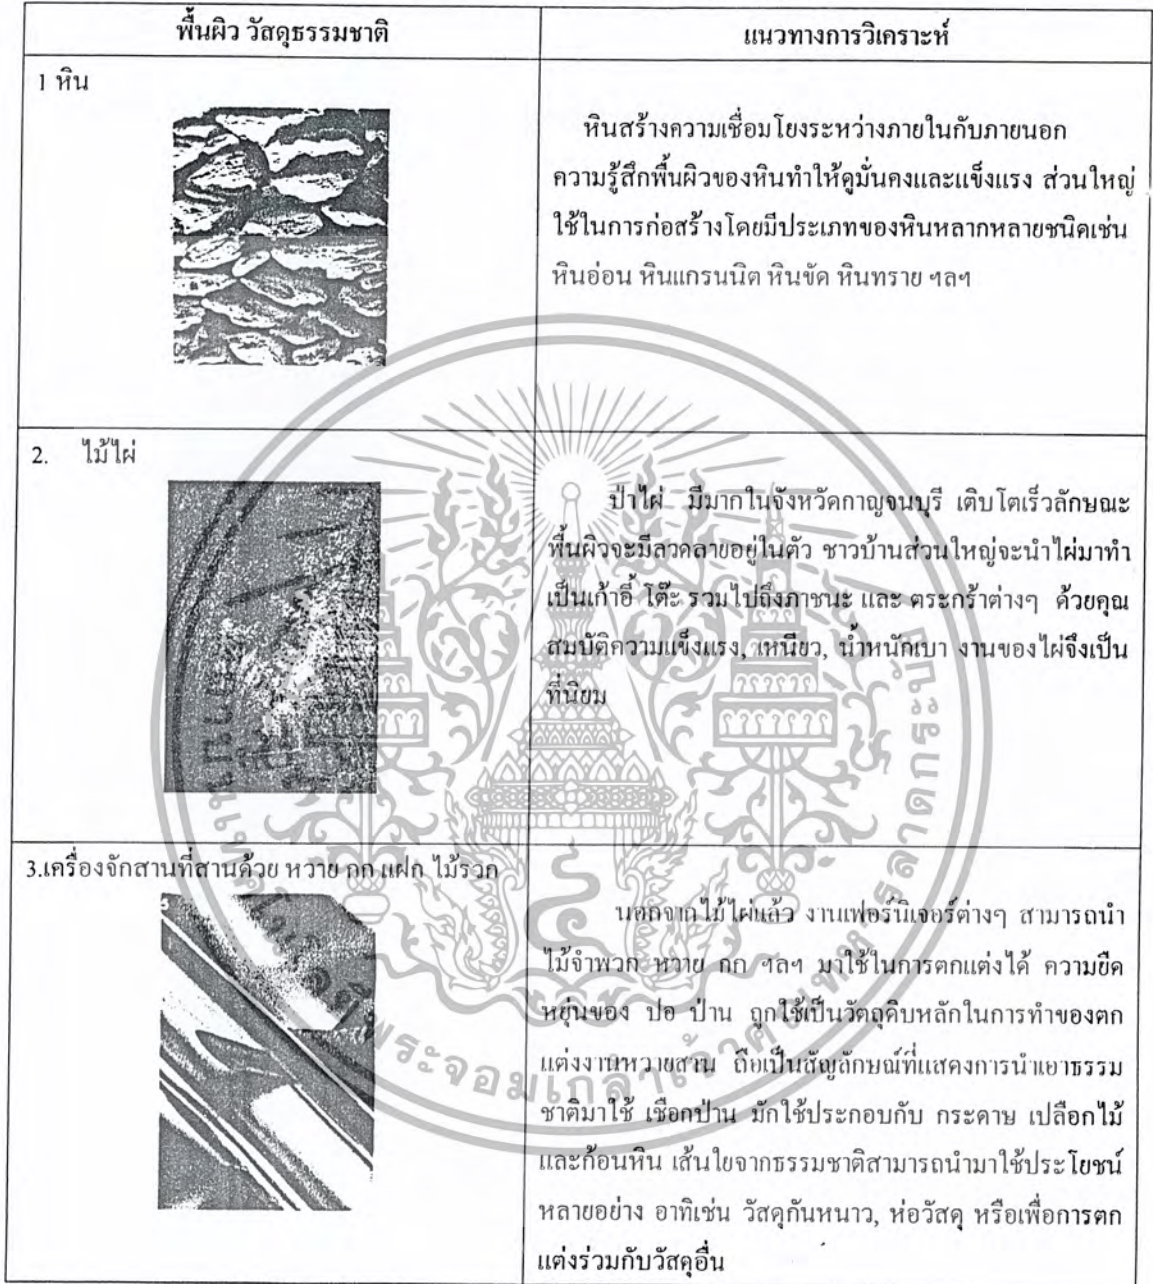 พื้นผิว วัสดุธรรมชาติ
แนวทางการวิเคราะห์
1 หิน
หินสร้างความเชื่อมโยงระหว่างภายในกับภายนอก
ความรู้สึกพื้นผิวของหินทำให้ดูมั่นคงและแข็งแรง ส่วนใหญ่
ใช้ในการก่อสร้างโดยมีประเภทของหินหลากหลายชนิดเช่น
หินอ่อน หินแกรนนิต หินขัด หินทราย ฯลฯ
2. ไม้ไผ่
ป่าไผ่ มีมากในจังหวัดกาญจนบุรี เติบโตเร็วลักษณะ
พื้นผิวจะมีลวดลายอยู่ในตัว ชาวบ้านส่วนใหญ่จะนำไผ่มาทำ
เป็นเก้าอี้ โต๊ะ รวมไปถึงภาชนะ และ ตระกร้าต่างๆ ด้วยคุณ
สมบัติความแข็งแรง, เหนียว, น้ำหนักเบา งานของไผ่จึงเป็น
ที่นิยม
3.เครื่องจักสานที่สานด้วย หวาย กก แฝก ไม้รวก
นอกจากไม้ไผ่แล้ว งานเฟอร์นิเจอร์ต่างๆ สามารถนำ
ไม้จำพวก หวาย กก ฯลฯ มาใช้ในการตกแต่งได้ ความยืด
หยุ่นของ ปอ ป่าน ถูกใช้เป็นวัตถุดิบหลักในการทำของตก
แต่งงานหวายสาน ถือเป็นสัญลักษณ์ที่แสดงการนำเอาธรรม
ชาติมาใช้ เชือกป่าน มักใช้ประกอบกับ กระดาษ เปลือกไม้
และก้อนหิน เส้นใยจากธรรมชาติสามารถนำมาใช้ประโยชน์
หลายอย่าง อาทิเช่น วัสดุกันหนาว, ห่อวัสดุ หรือเพื่อการตก
แต่งร่วมกับวัสดุอื่น
พระจอมเกล้าเจ้าคุณทหารลาดกระบัง